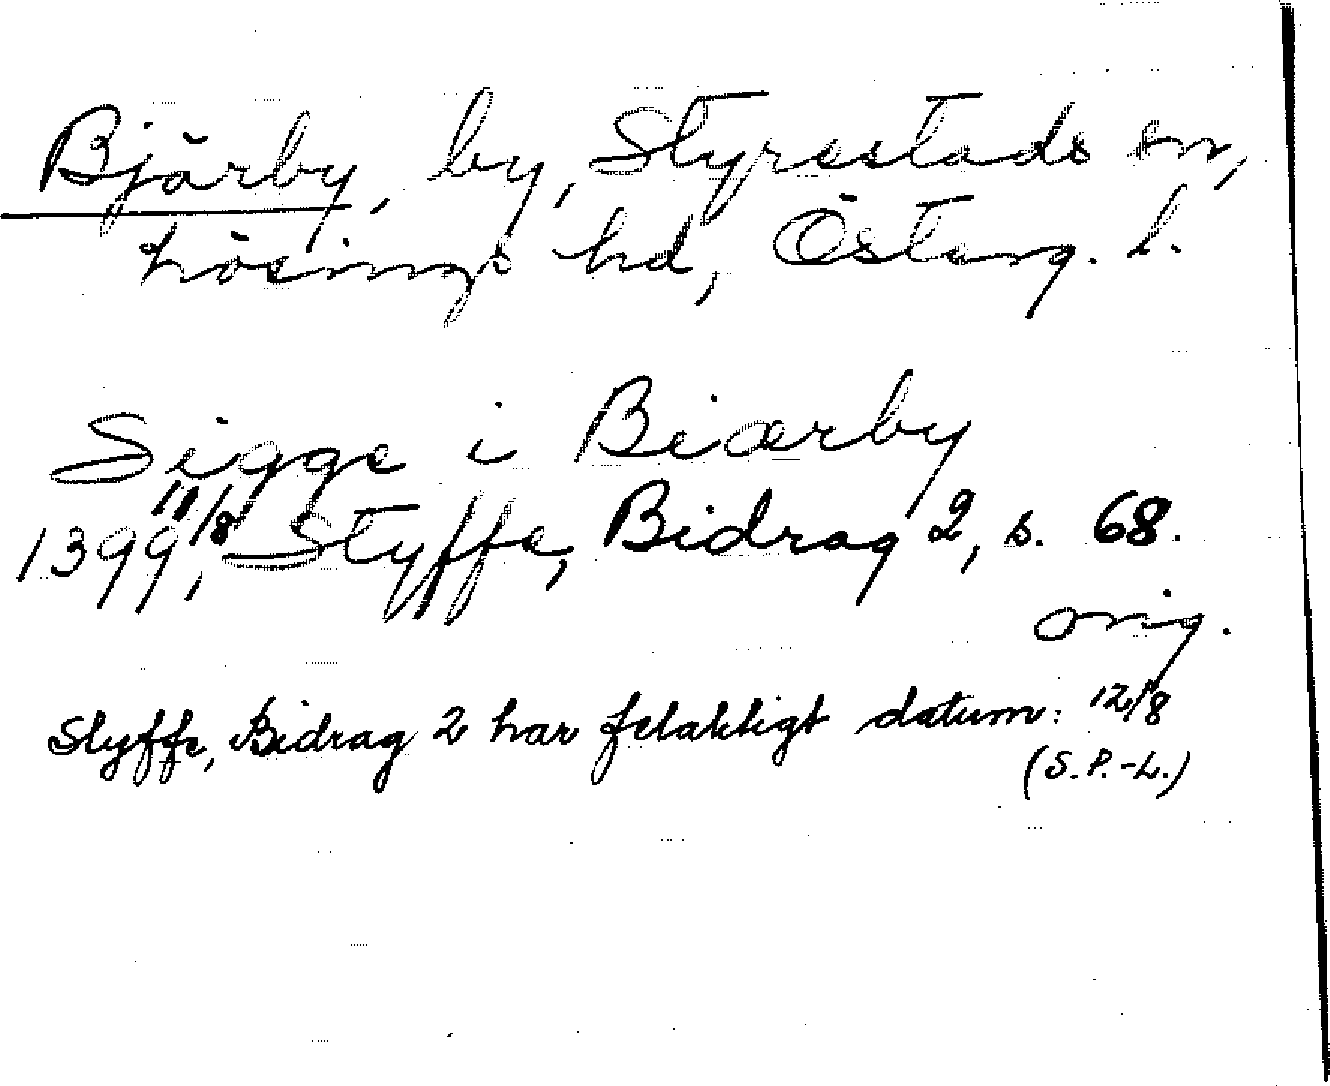 Bjärby, by, Styrestads sn,
Lösings hd, Österg. l.
Sigge i Biærby
1399 11/8, Styffe, Bidrag 2, s. 68.
orig.
Styffe, Bidrag 2 har felaktigt datum: 12/8
(S.P.-L.)